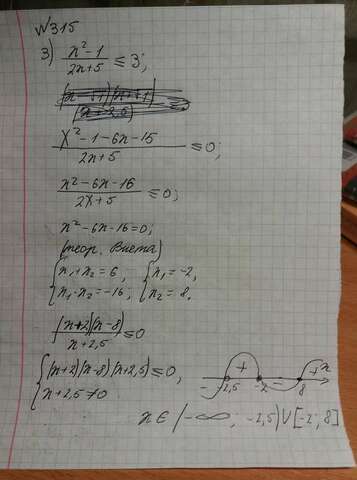 №315
3) x²-1 / 2x+5 ≤ 3;
x²-1-6x-15 / 2x+5 ≤ 0;
x²-6x-16 / 2x+5 ≤ 0;
x²-6x-16=0;
(теор. Виета)
{ x₁+x₂=6, { x₁=-2,
{ x₁·x₂=-16; { x₂=8.
(x+2)(x-8) / x+2,5 ≤ 0
{ (x+2)(x-8)(x+2,5) ≤ 0,
{ x+2,5≠0
- -2,5 + -2 - 8 + x
x∈(-∞; -2,5)∪[-2; 8]